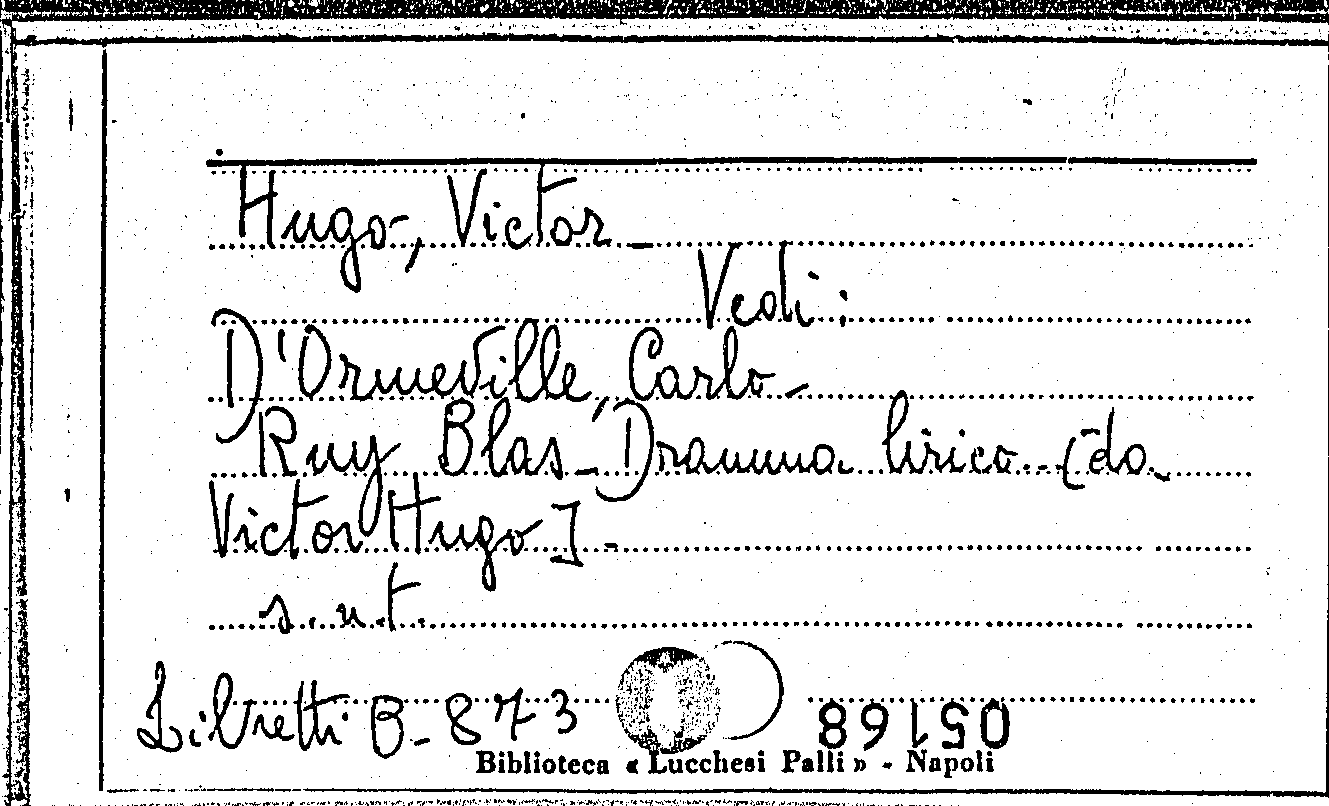 Hugo, Victor -
Vedi:
D'Ormeville, Carlo -
Ruy Blas - Dramma lirico. [da
Victor Hugo] -
s.n.t.
Libretti B - 873
05168
Biblioteca « Lucchesi Palli » - Napoli